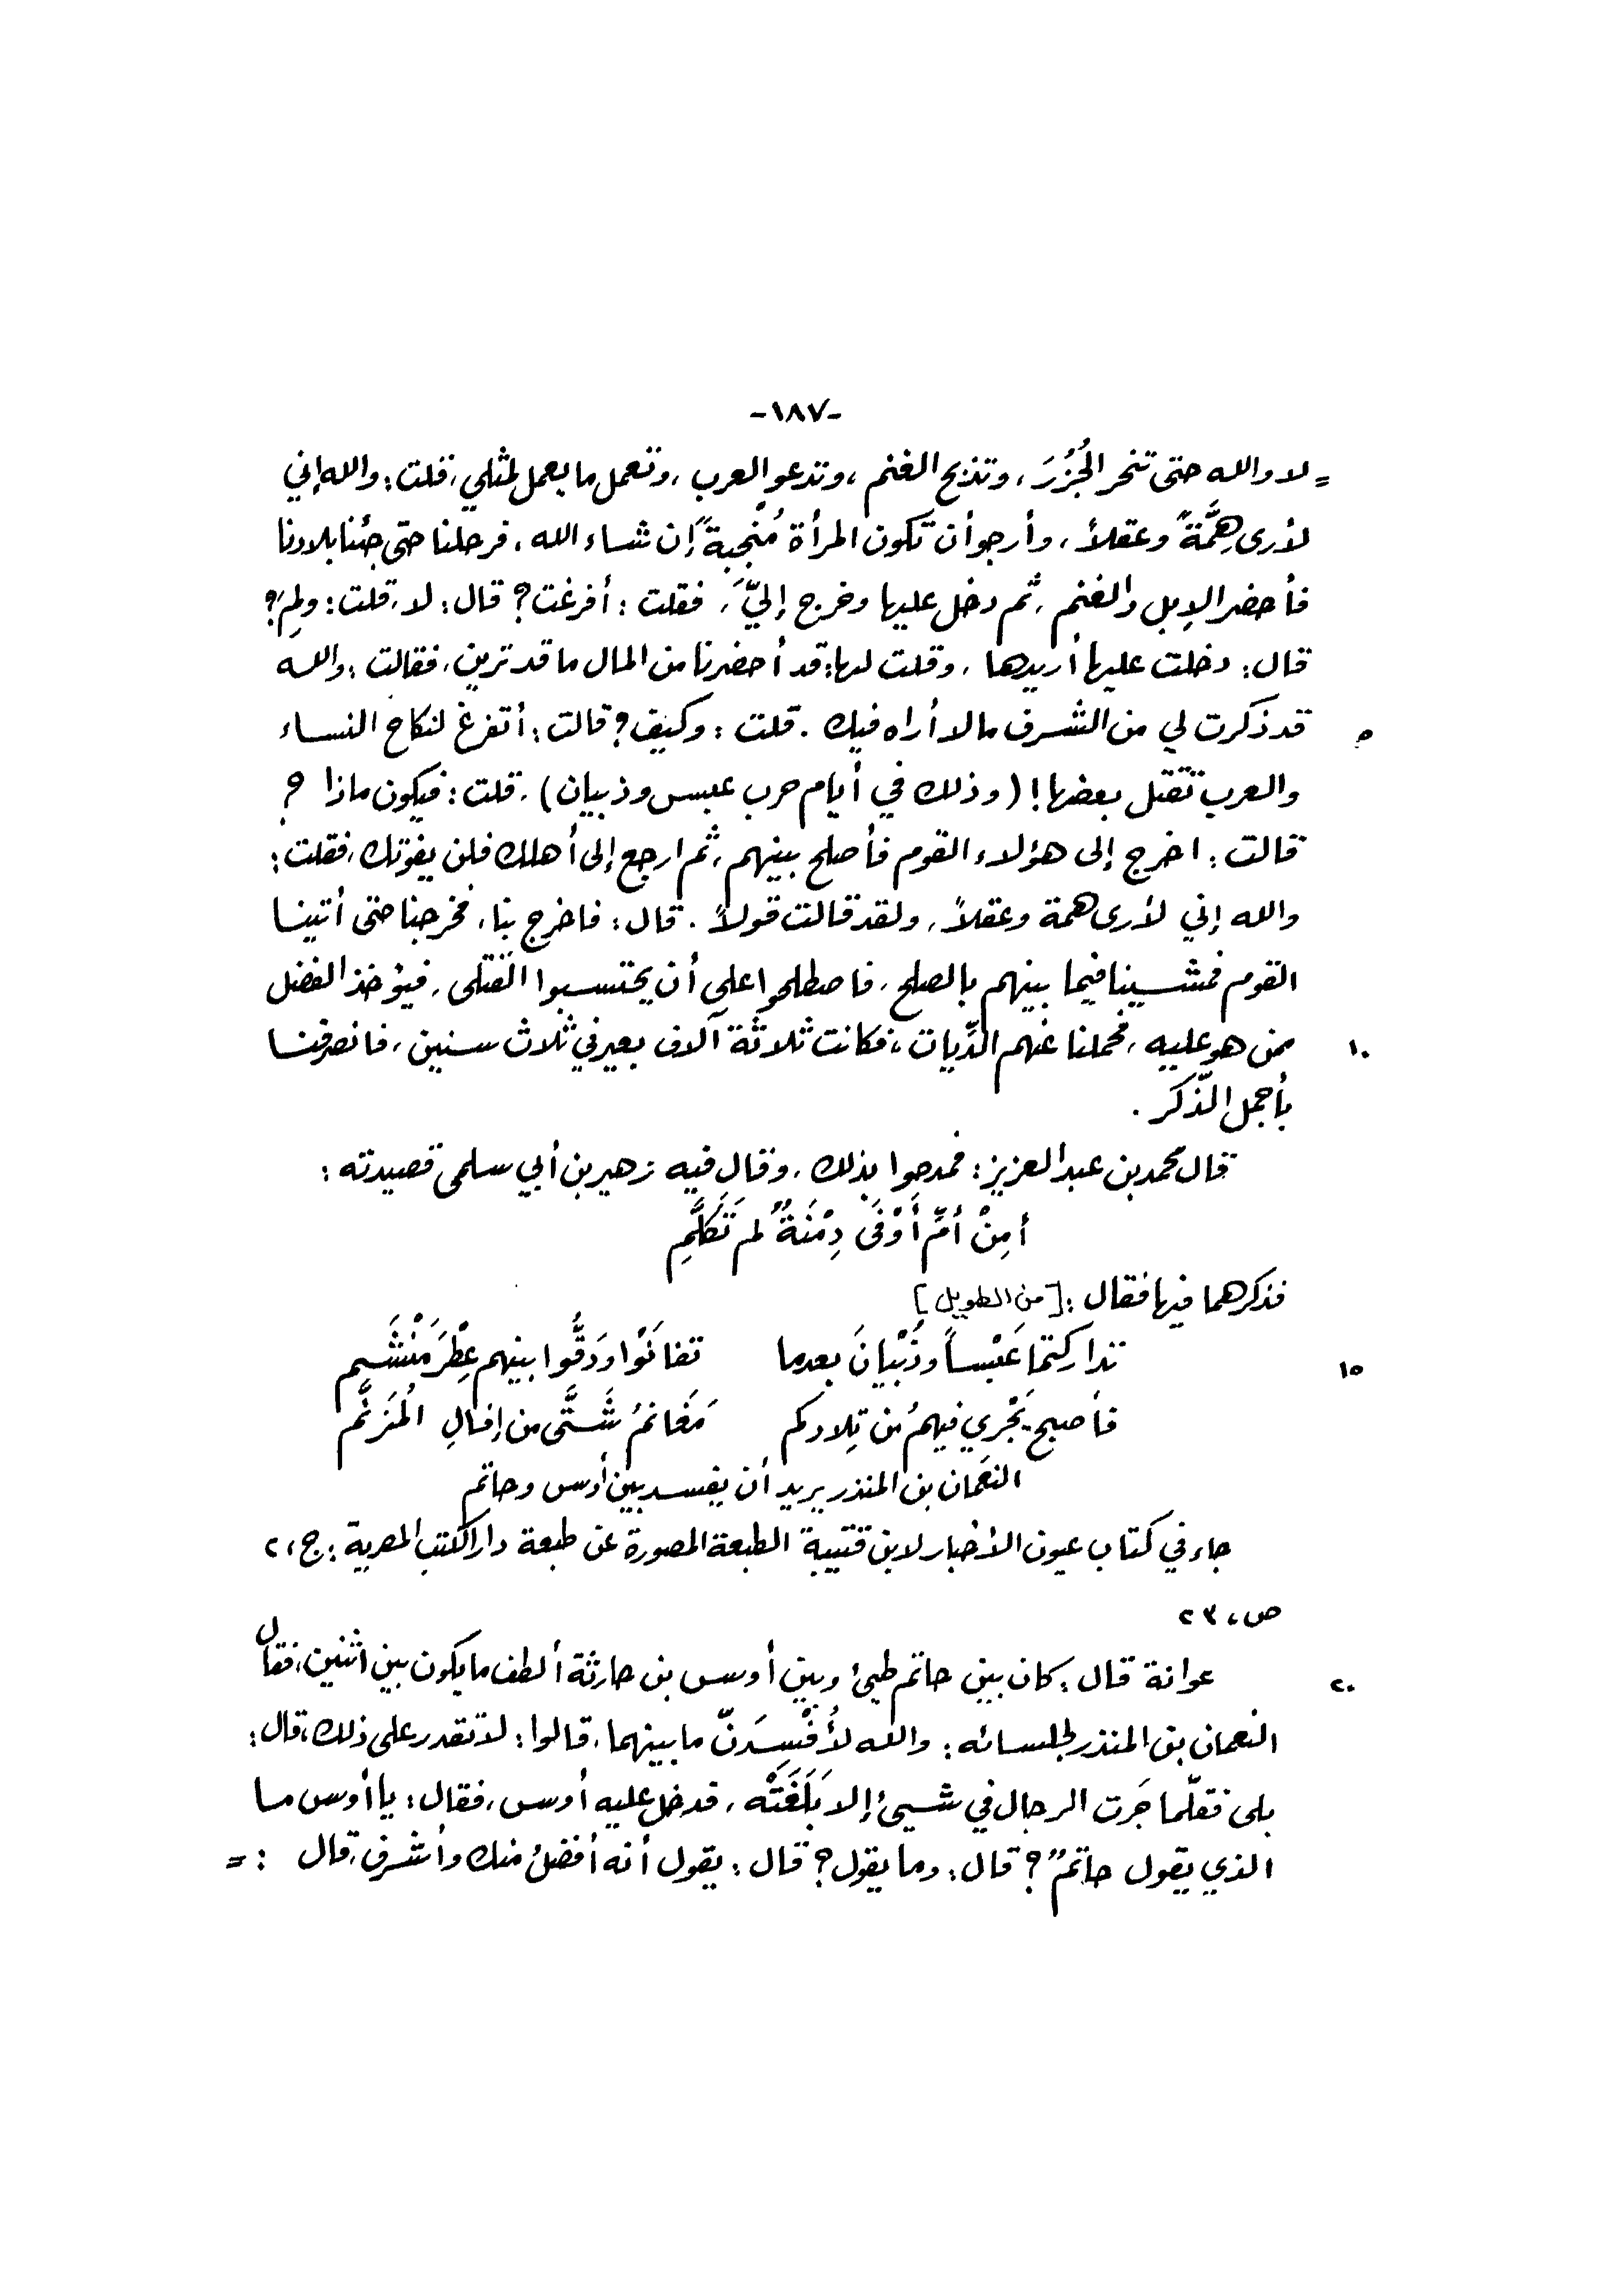 -١٨٧-
= لا والله حتى تنحر الجُزُرَ، وتذبح الغنم، وتدعو العرب، وتعمل ما يعمل لمثلي، قلت: والله إني
لأرى هِمَّةً وعقلاً، وأرجو أن تكون المرأة مُنْجِبةً إن شاء الله، فرحلنا حتى جئنا بلادنا
فأحضر الإبل والغنم، ثم دخل عليها وخرج إليَّ، فقلت: أفرغت؟ قال: لا، قلت: ولِمَ؟
قال: دخلت عليها أريدها، وقلت لها: قد أحضرنا من المال ما قد ترين، فقالت: والله
٥ قد ذكرت لي من الشرف مالا أراه فيك. قلت: وكيف؟ قالت: أتفرغ لنكاح النساء
والعرب تقتل بعضها! (وذلك في أيام حرب عبس وذبيان)، قلت: فيكون ماذا؟
قالت: اخرج إلى هؤلاء القوم فأصلح بينهم، ثم ارجع إلى أهلك فلن يفوتك، فقلت:
والله إني لأرى همة وعقلاً، ولقد قالت قولاً. قال: فاخرج بنا، فخرجنا حتى أتينا
القوم فمشينا فيما بينهم بالصلح، فاصطلحوا على أن يحتسبوا القتلى، فيؤخذ الفضل
١٠ ممن هو عليه، فحملنا عنهم الدِّيات، فكانت ثلاثة آلاف بعير في ثلاث سنين، فانصرفنا
بأجمل الذّكر.
قال محمد بن عبد العزيز: فمدحوا بذلك، وقال فيه زهير بن أبي سلمى قصيدته:
أمِنْ أُمِّ أَوْفَى دِمْنَةٌ لم تَكَلَّمِ
فذكرهما فيها فقال: [من الطويل]
١٥ تداركتما عَبْساً وذُبْيانَ بعدما تفانَوْا ودَقُّوا بينهم عِطْرَ مَنْشَمِ
فأصبح يَجْري فيهمُ من تِلادكم مَغَانمُ شَتَّى من إفالِ المُزَنَّم
النعمان بن المنذر يريد أن يفسد بين أوس وحاتم
جاء في كتاب عيون الأخبار لابن قتيبة الطبعة المصورة عن طبعة دار الكتب المصرية: ج، ٢
ص، ٢٣
٢٠ عوانة قال: كان بين حاتم طيئ وبين أوس بن حارثة ألطف ما يكون بين اثنين، فقال
النعمان بن المنذر لجلسائه: والله لأُفْسِدَنّ ما بينهما، قالوا: لا تقدر على ذلك، قال:
بلى فقلّما جَرت الرجال في شيئ إلا بَلَغَتْه، فدخل عليه أوس، فقال: يا أوس ما
الذي يقول حاتمٌ؟ قال: وما يقول؟ قال: يقول أنه أفضلُ منك وأشرف، قال: =